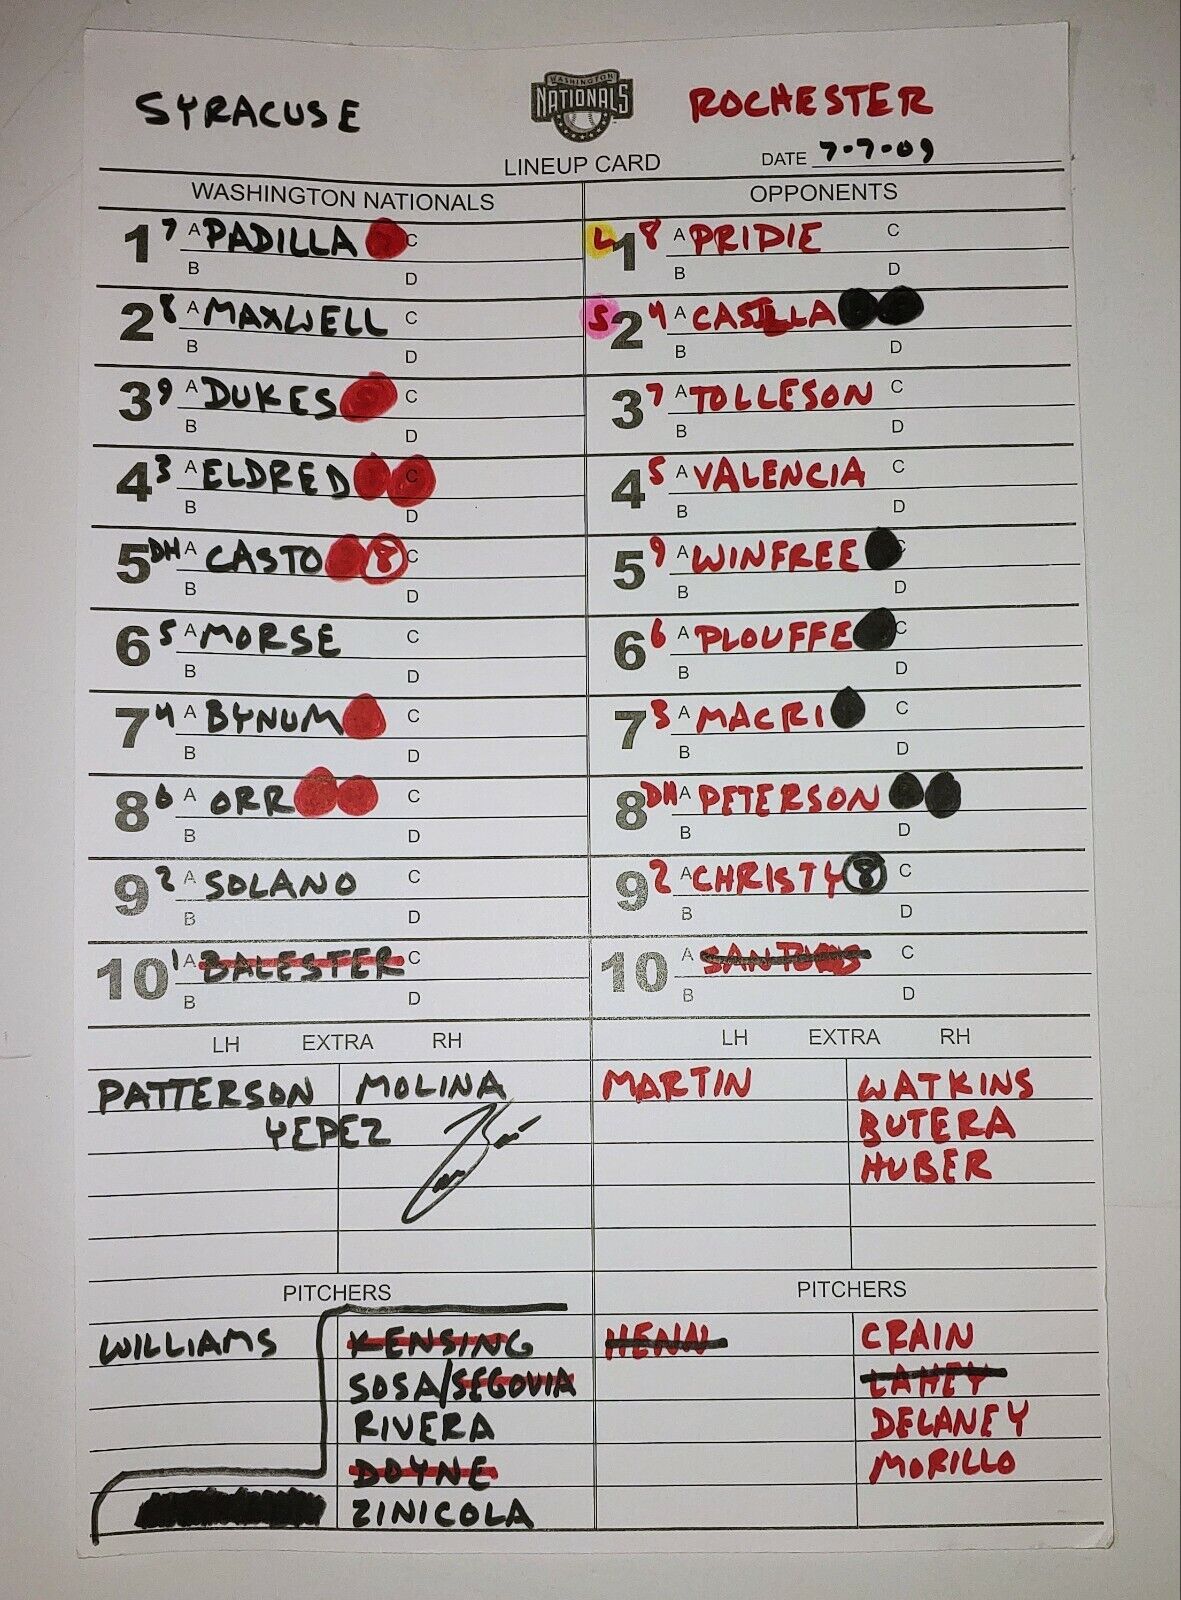 SYRACUSE
WASHINGTON
NATIONALS
ROCHESTER
LINEUP CARD
DATE 7-7-09
WASHINGTON NATIONALS
1 7 A PADILLA C
B D
2 8 A MAXWELL C
B D
3 9 A DUKES C
B D
4 3 A ELDRED C
B D
5 DH A CASTO 8 C
B D
6 5 A MORSE C
B D
7 4 A BYNUM C
B D
8 6 A ORR C
B D
9 2 A SOLANO C
B D
10 1 A BALESTER C
B D
LH EXTRA RH
PATTERSON MOLINA
YEPEZ
PITCHERS
WILLIAMS KENSING
SOSA/SEGOVIA
RIVERA
DOYNE
ZINICOLA
OPPONENTS
L 1 8 A PRIDIE C
B D
S 2 4 A CASILLA
B D
3 7 A TOLLESON C
B D
4 5 A VALENCIA C
B D
5 9 A WINFREE C
B D
6 6 A PLOUFFE C
B D
7 3 A MACRI C
B D
8 DH A PETERSON
B D
9 2 A CHRISTY 8 C
B D
10 A C
B D
LH EXTRA RH
MARTIN WATKINS
BUTERA
HUBER
PITCHERS
HENN CRAIN
LAHEY
DELANEY
MORILLO